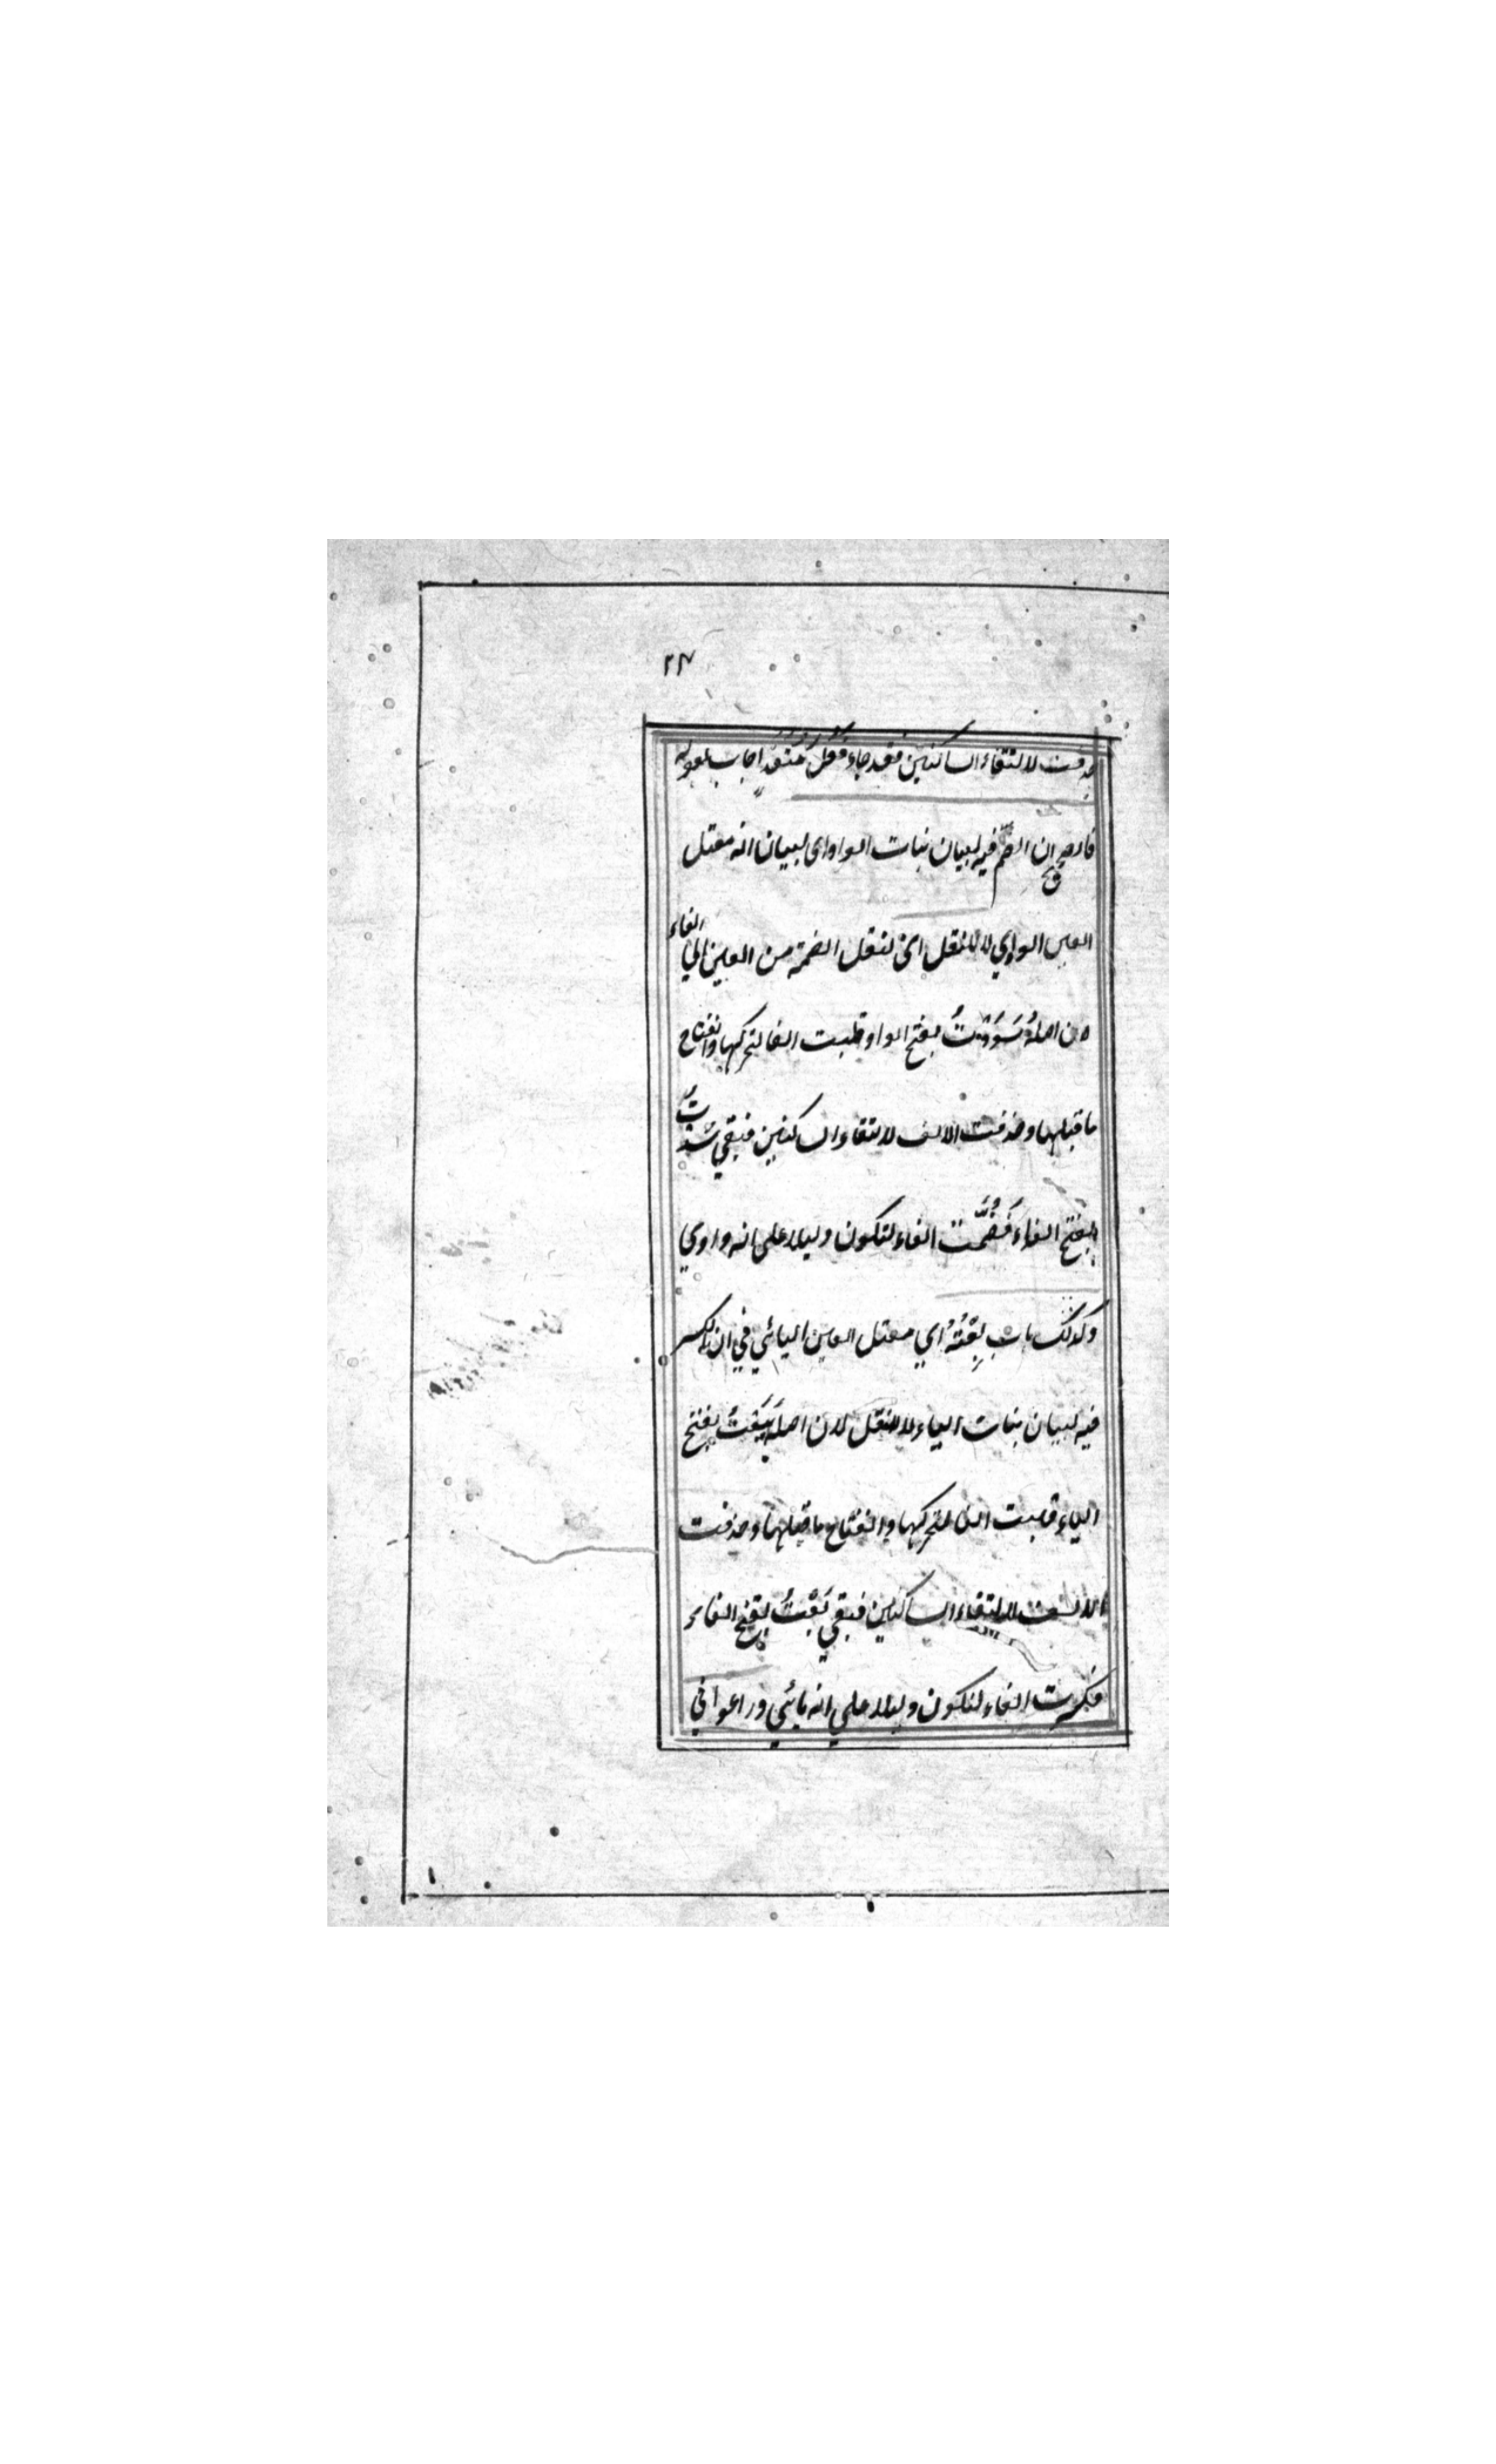 ٢٣
حذفت لالتقاء الساكنين فقد جاء فَعُلَ متعدٍ اجاب بقوله
فالاصح ان الضم فيه لبيان بنات الواو اي لبيان انه معتل
العين الواوي لا للنقل اي لنقل الضمة من العين الي الفاء
لان اصله سَوَدْتُ بفتح الواو قلبت الفا لتحركها وانفتاح
ما قبلها وحذفت الالف لالتقاء الساكنين فبقي سَدْتُ
بفتح الفاء فضُمَّت الفاء لتكون دليلا علي انه واوي
وكذلك باب بِعْتُه اي معتل العين اليائي في ان الكسر
فيه لبيان بنات الياء لا للنقل لان اصله بَيَعْتُ بفتح
الياء قلبت الفا لتحركها وانفتاح ما قبلها وحذفت
الالف لالتقاء الساكنين فبقي بَعْتُ بفتح الفاء
فكسرت الفاء لتكون دليلا علي انه يائي وراعوا في